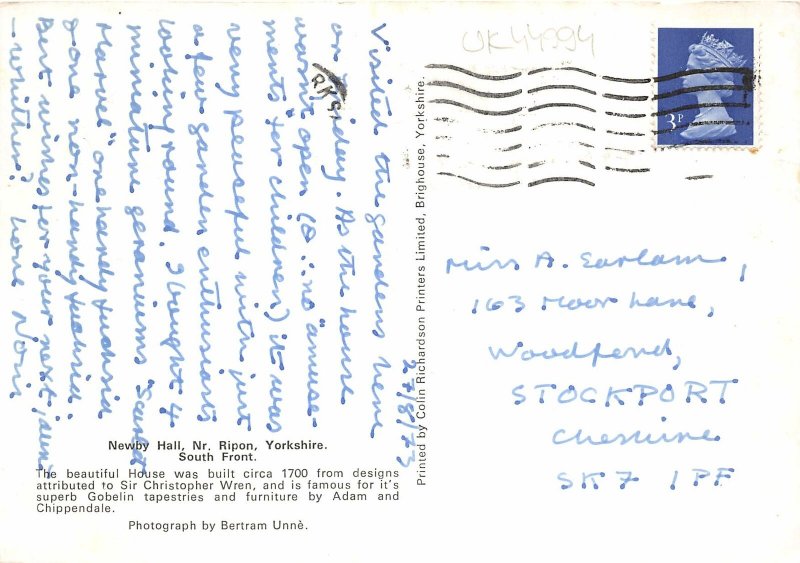 27/8/73
Visited the gardens here
on Friday. As the house
wasn't open (& ∴ no "amuse-
ments for children") it was
very peaceful with just
a few garden enthusiasts
looking round. I bought 4
miniature geraniums "Scarlet
Marvel" one hardy fuchsia
& one non-hardy fuchsia.
Best wishes for your next jaunt
– whither? love Nora
Newby Hall, Nr. Ripon, Yorkshire.
South Front.
The beautiful House was built circa 1700 from designs
attributed to Sir Christopher Wren, and is famous for it's
superb Gobelin tapestries and furniture by Adam and
Chippendale.
Photograph by Bertram Unnè.
Printed by Colin Richardson Printers Limited, Brighouse, Yorkshire.
UK44994
RKS
3P
Miss A. Earlam,
163 Moor Lane,
Woodford,
STOCKPORT
Cheshire
SK7 1PF